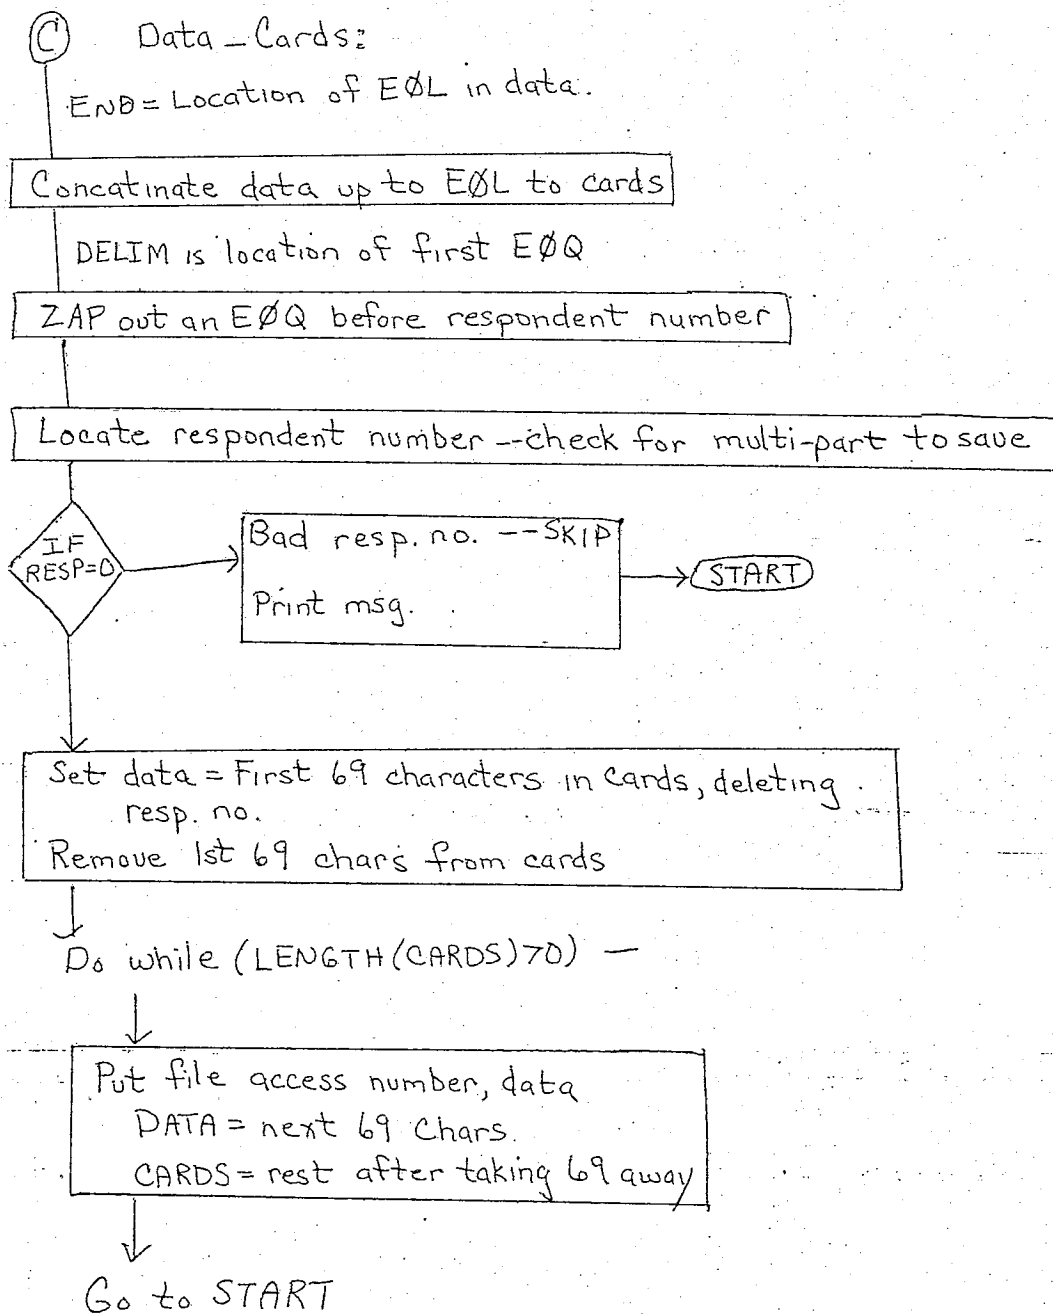 C Data_Cards:
END = Location of EØL in data.
Concatinate data up to EØL to cards
DELIM is location of first EØQ
ZAP out an EØQ before respondent number
Locate respondent number -- check for multi-part to save
IF
RESP=0
Bad resp. no. -- SKIP
Print msg.
START
Set data = First 69 characters in cards, deleting
resp. no.
Remove 1st 69 chars from cards
Do while (LENGTH(CARDS)>70) —
Put file access number, data
DATA = next 69 Chars.
CARDS = rest after taking 69 away
Go to START